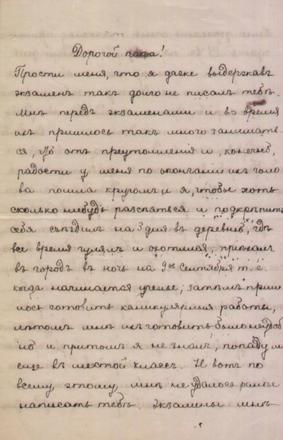 Дорогой папа!
Прости меня, что я даже выдержавъ
экзаменъ такъ долго не писалъ тебѣ.
Мнѣ передъ экзаменами и во время
ихъ пришлось такъ много заниматъ-
ся, что отъ преутомления и, конечно,
радости у меня по окончании ихъ голо
ва пошла кругомъ и я, чтобы хоть
сколько нибудь разспаться и подкрѣпить
себя съѣздилъ на 3 дня въ деревню, гдѣ
все время гулялъ и охотился, приѣхалъ
въ городъ въ ночь на 9ое Сентября т. е.
когда начинается ученье, затѣмъ приш
лось готовить каникулярныя работы,
лѣтомъ мнѣ ихъ готовить было неудоб
но и притомъ я не зналъ, попаду ли
еще въ шестой классъ. И вотъ по
всему этому, мнѣ не удалось раньше
написать тебѣ. Экзамены мнѣ